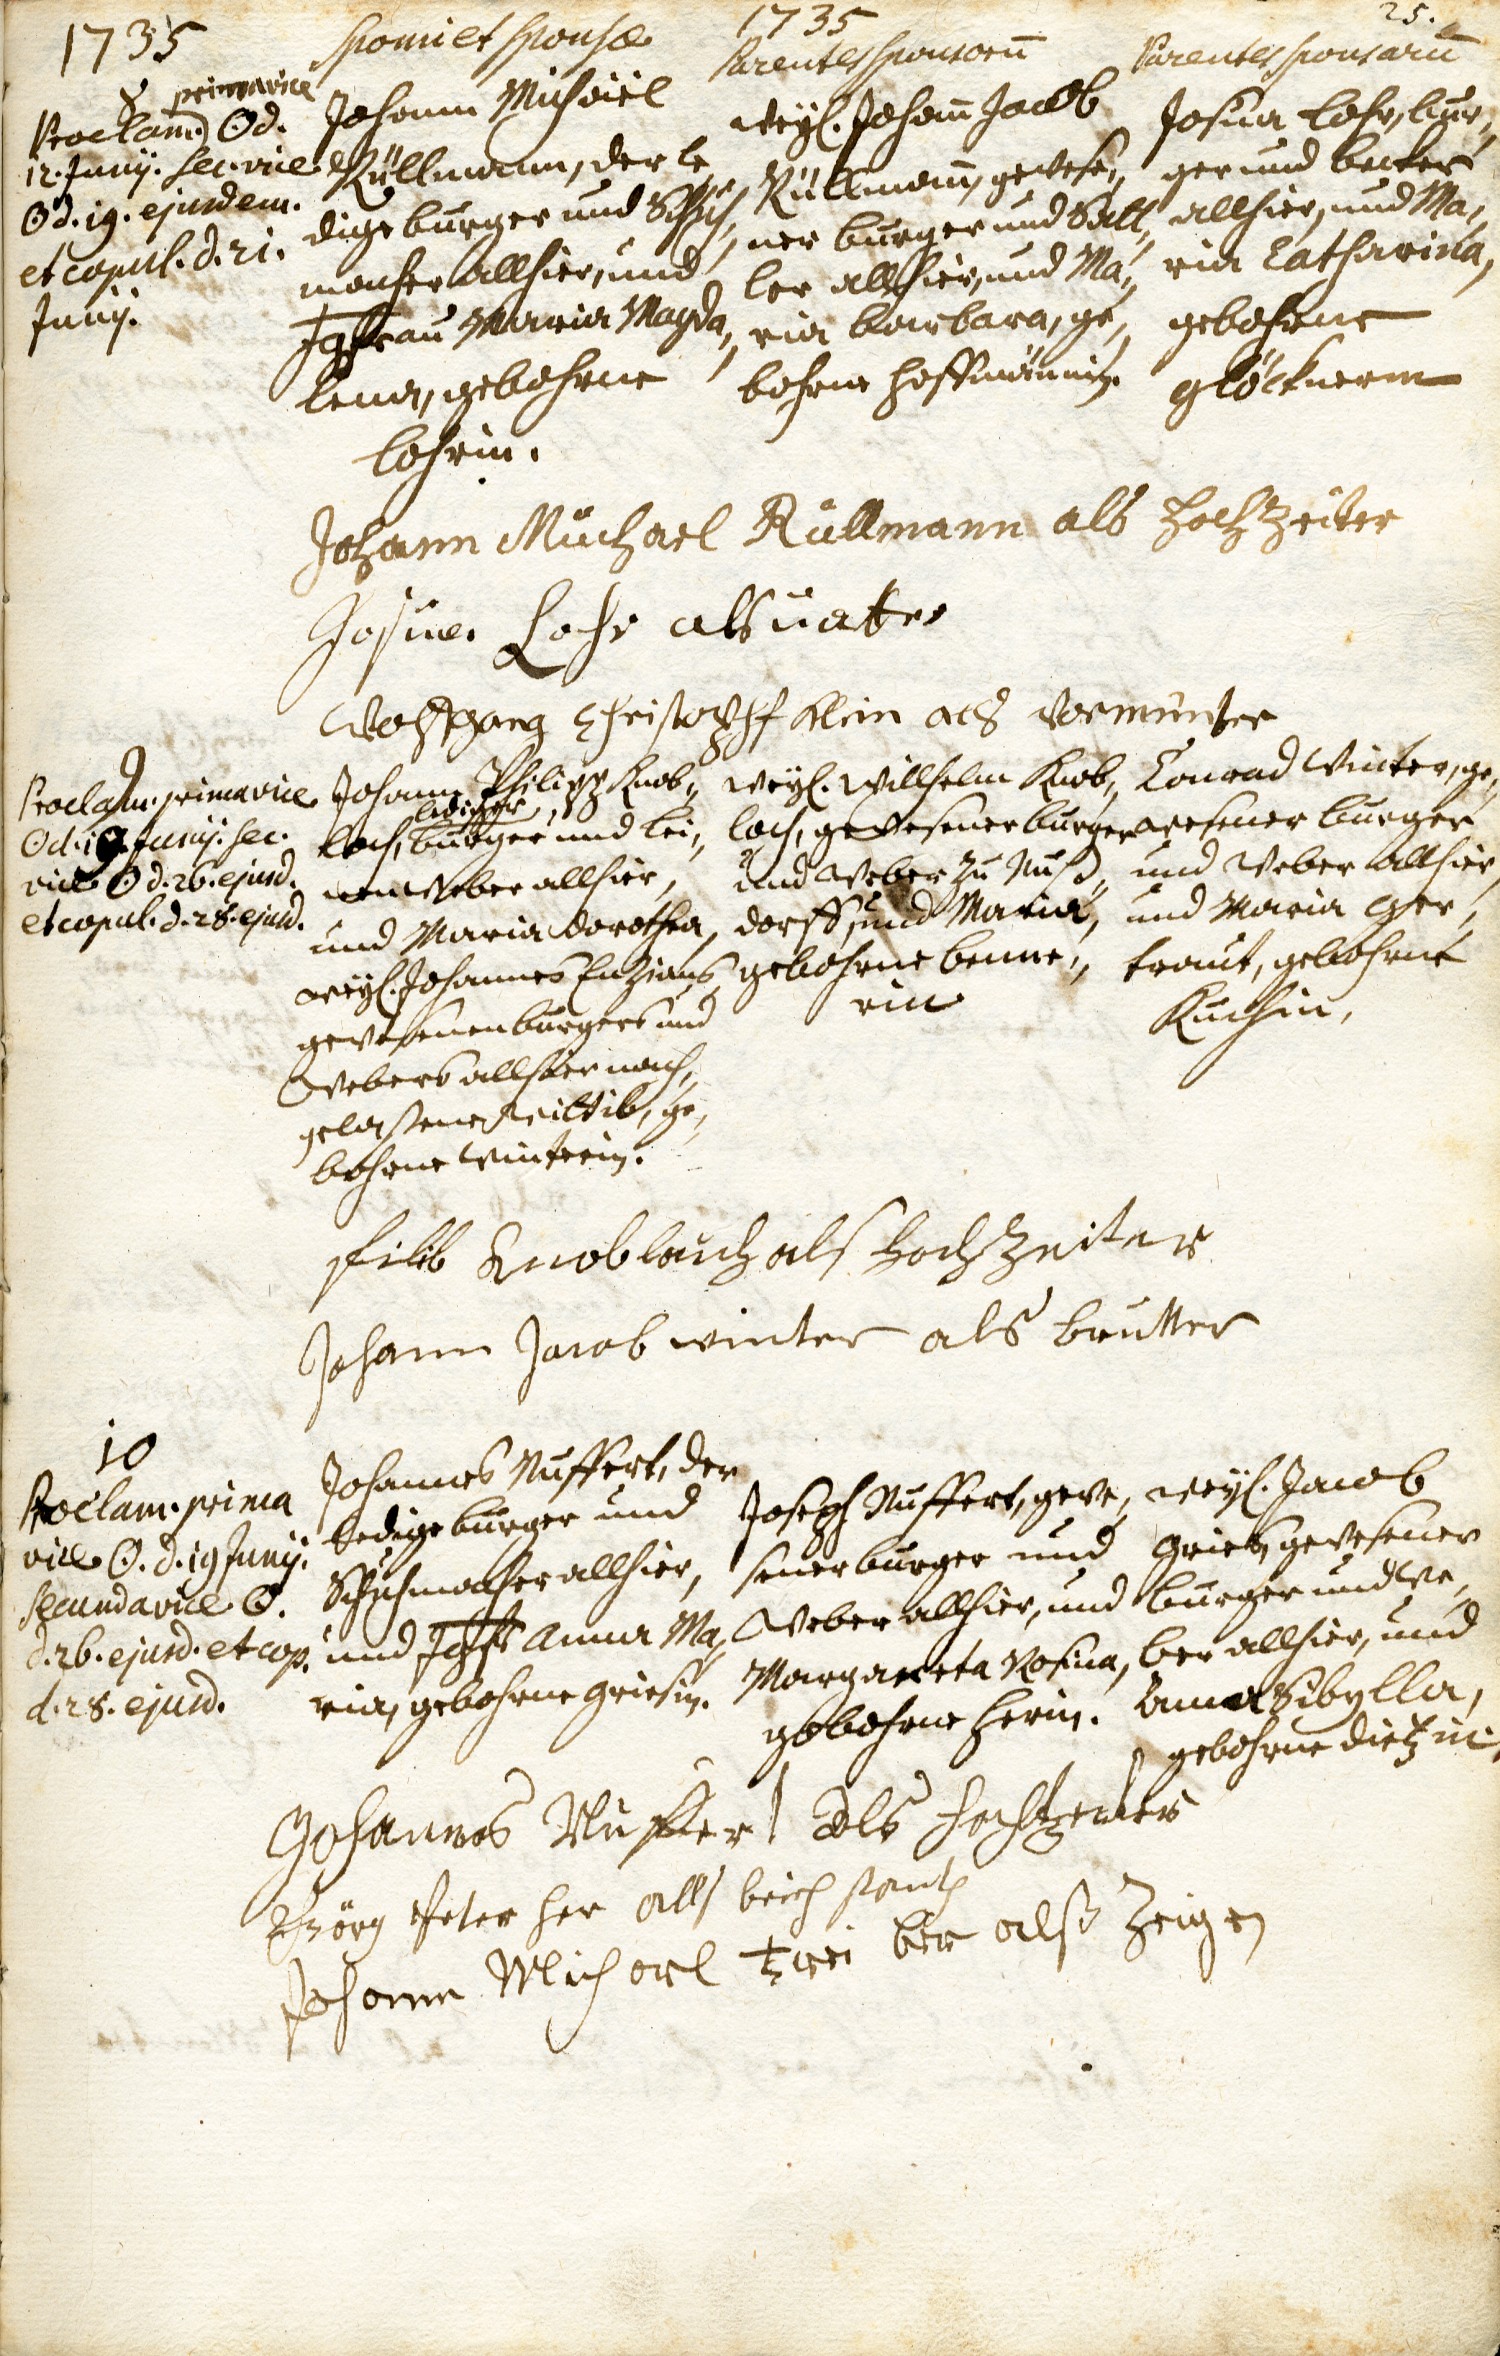 1735
Sponsi et Sponsæ
1735
Parentes Sponsorū
25.
Parentes Sponsarū
8 primavice
Proclam. ☉ d.
12. Junij. sec. vice
☉ d. 19. ejusdem.
et copul. d. 21.
Junij.
Johann Michäel
Küllmann, der le„
dige burger und Schuh„
macher allhier, und
Jgfrau Maria Magda„
lena, gebohrne
Lohrin.
weyl. Johañ Jacob
Küllmañ, gewese„
ner burger und Satt„
ler allhier, und Ma„
ria barbara, ge„
bohrne hoffmännin.
Josua Lohr, bur„
ger und becker
allhier, und Ma„
ria Catharina,
gebohrne
glöcknerin
Johann Müchael Küllmann als hochzeiter
Josua Lohr als vatter
Wolfgang Christopff Klein als vormünter
9
Proclam. primavice
☉ d. 19. Junij. sec.
vice ☉ d. 26. ejusd.
et copul. d. 28. ejusd.
Johann Philipp Knob„
lediger
loch, burger und lei„
nenweber allhier,
und Maria dorothea,
weyl. Johannes Enzians
gewesenen burgers und
Webers allhier nach„
gelaßene Wittib, ge„
bohrne Winterin.
weyl. Willhelm Knob„
loch, gewesener burger
und Weber zu Nuß„
dorff, und Maria,
gebohrne benne„
rin
Conrad Winter, ge„
wesener burger
und Weber allhier,
und Maria Ger„
traut, gebohrne
Kuchin,
filib Knoblauch als hochzeiter
Johann Jacob winter als brutter
10
Proclam. prima
vice ☉. d. 19 Junij.
secunda vice ☉.
d. 26. ejusd. et cop.
d. 28. ejusd.
Johannes Nuffert, der
ledige burger und
Schuhmacher allhier,
und Jgfr Anna Ma„
ria, gebohrne griesin.
Joseph Nuffert, gewe„
sener burger und
Weber allhier, und
Margaretta Rosina,
gebohrne herin.
weyl. Jacob
Gries, gewesener
burger und We„
ber allhier, und
Anna Sibylla,
gebohrne dietzin.
Johannes Nuffert als hochtzeiter
Görg Peter her alls beich stant
Johann Michael als Zeigen